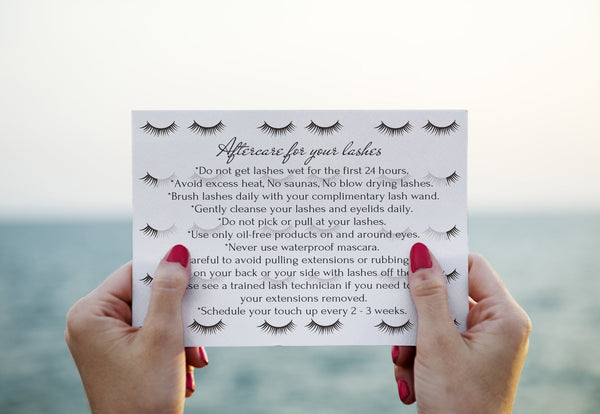 Aftercare for your lashes
*Do not get lashes wet for the first 24 hours.
*Avoid excess heat, No saunas, No blow drying lashes.
*Brush lashes daily with your complimentary lash wand.
*Gently cleanse your lashes and eyelids daily.
*Do not pick or pull at your lashes.
*Use only oil-free products on and around eyes.
*Never use waterproof mascara.
areful to avoid pulling extensions or rubbing
on your back or your side with lashes off the
se see a trained lash technician if you need to
your extensions removed.
*Schedule your touch up every 2 - 3 weeks.